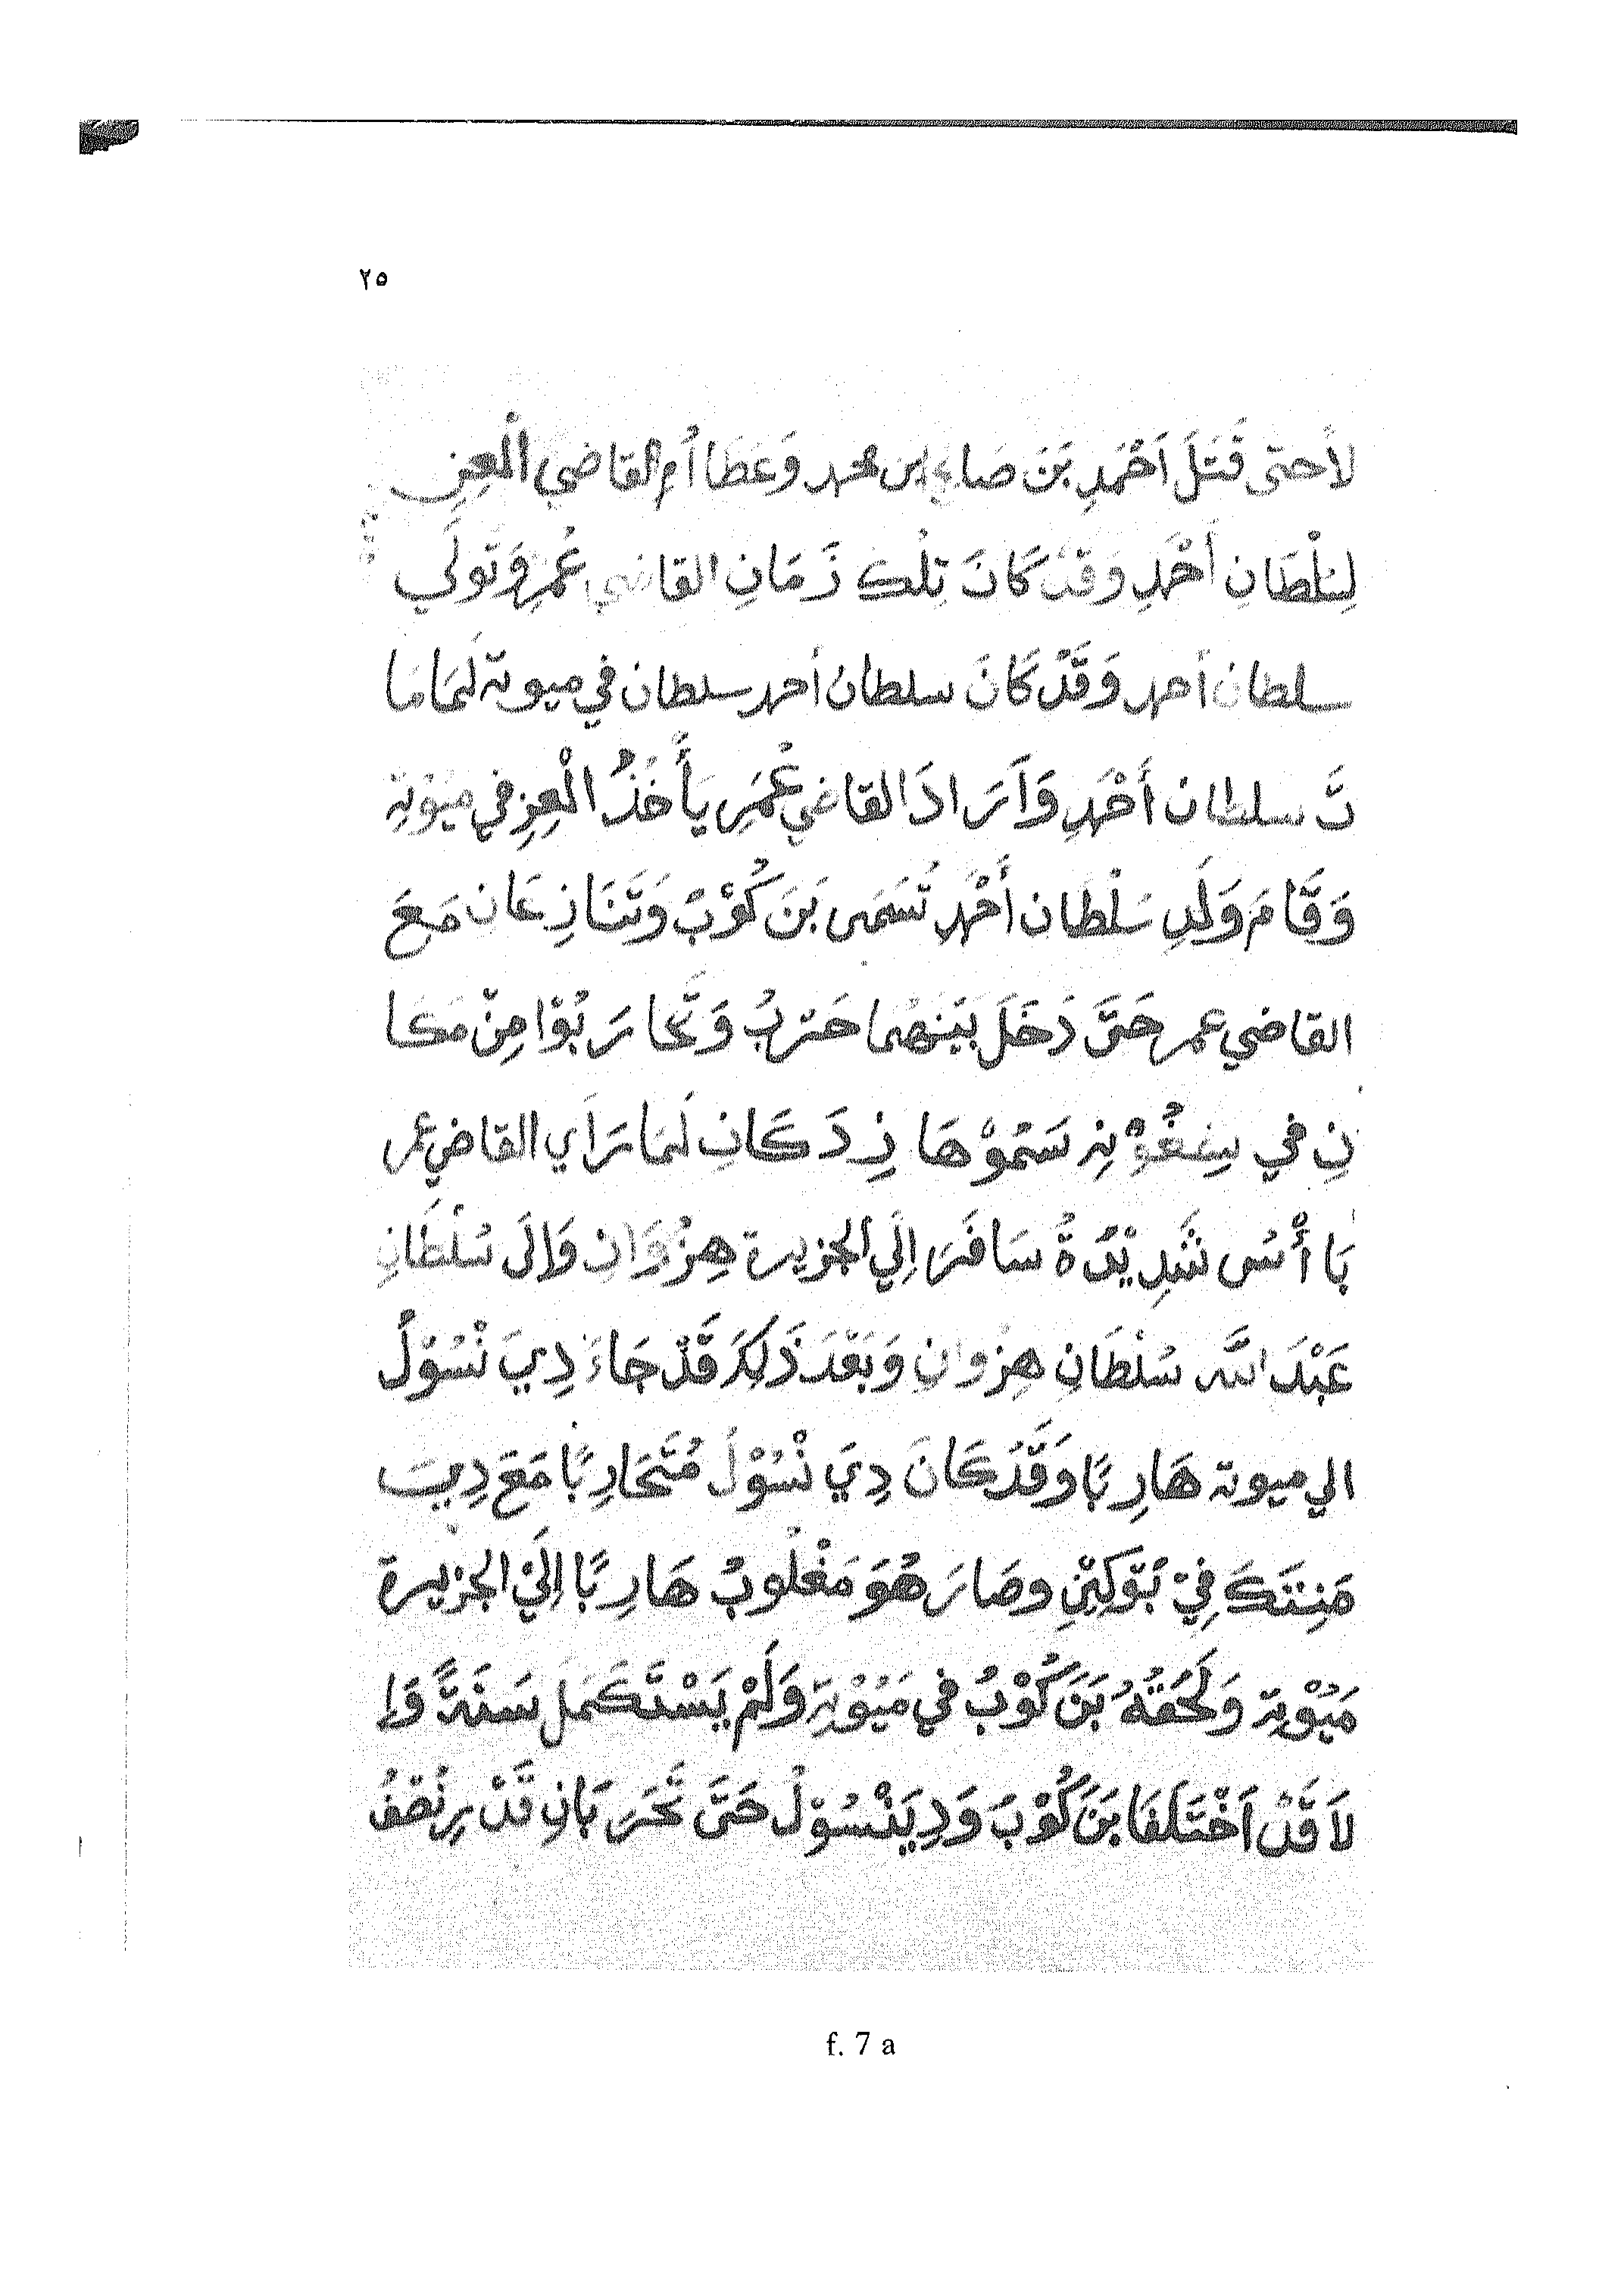 ٢٥
لأحتى قَتَلَ اَحْمَدِ بَنَ صَالح ابن محمد وَعَطَا أم القاضي الْعِزِ
لِسُلْطَانِ أَحْمَدِ وَقَدْ كَانَ تِلْكَ زَمَانِ القاضي عُمَرِ وَتَوَلَّي
سلطان أحمد وَقَدْ كَانَ سلطان أحمد سلطان في ميوتة لَمَا مَا
تَ سلطان أَحْمَدِ وَاَرَادَ القاضي عُمَرِ يَأَخَذُ الْعِزِ في مَيُوْتِة
وَقَامَ وَلَدِ سَلْطَان أَحْمَدِ تُسَمَى بَنَ كُوْبُ وَتَنَازِعَان مَعَ
القاضي عمر حَتَّى دَخَلَ بَيْنَهُمَا حَرْبُ وَتَحَارَبُوْا مِنْ مَكَا
نِ في سِنْغُوْنِ سَمُوْهَا نِدَكَانِ لَمَا رَاَي القاضي عمر
بَاأْسُ شَدِيْدَةُ سَافَرَ اِلَي الجزيرة هِنْزُوَانِ وَاِلَى سُلْطَانِ
عَبْدَ اللَّه سُلْطَانِ هِنْزوانِ وَبَعْدَ ذَلِكَ قَدْ جَاءَ دِيَ نْسُوْلُ
الي ميوتة هَارِبًا وَقَدْ كَانَ دِيَ نْسُوْلُ مُتَحَارِبًا مَعَ دِيَ
مَنِنْتَكَ فِيْ بُوَكِيْنِ وصَارَ هُوَ مَغْلُوبُ هَارِبًا اِلَيْ الجزيرة
مَيُوْتِة وَلَحَقَهُ بَنَ كُوْبُ في مَيُوْتِة وَلَمْ يَسْتَكْمَلَ سَنَةً وَاِ
لَا قَدْ اَخْتَلَفَا بَنَ كُوْبَ وَدِيَنْسُوْلُ حَتَّى تَحَرَبَانِ قَدْ
f. 7 a